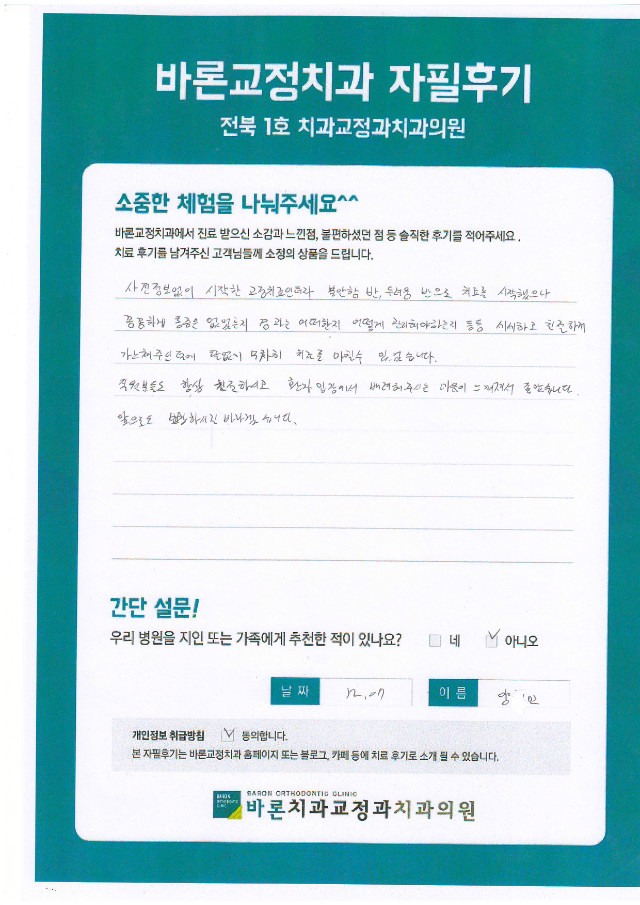 바론교정치과 자필후기
전북 1호 치과교정과치과의원
소중한 체험을 나눠주세요^^
바론교정치과에서 진료 받으신 소감과 느낀점, 불편하셨던 점 등 솔직한 후기를 적어주세요.
치료 후기를 남겨주신 고객님들께 소정의 상품을 드립니다.
사전정보없이 시작한 교정치료인지라 불안함 반, 두려움 반으로 치료를 시작했으나
꼼꼼하게 통증은 없었는지 경과는 어떠한지 어떻게 관리해야하는지 등등 친절하게
치료를 마칠수 있었습니다.
직원분들도 항상 친절하시고 환자입장에서 배려해주시는 마음이 느껴져서 좋았습니다.
앞으로도 바라겠습니다.
간단 설문!
우리 병원을 지인 또는 가족에게 추천한 적이 있나요? 네 아니오
날짜 12.07 이름
개인정보 취급방침 동의합니다.
본 자필후기는 바론교정치과 홈페이지 또는 블로그, 카페 등에 치료 후기로 소개 될 수 있습니다.
BARON ORTHODONTIC CLINIC
바론치과교정과치과의원